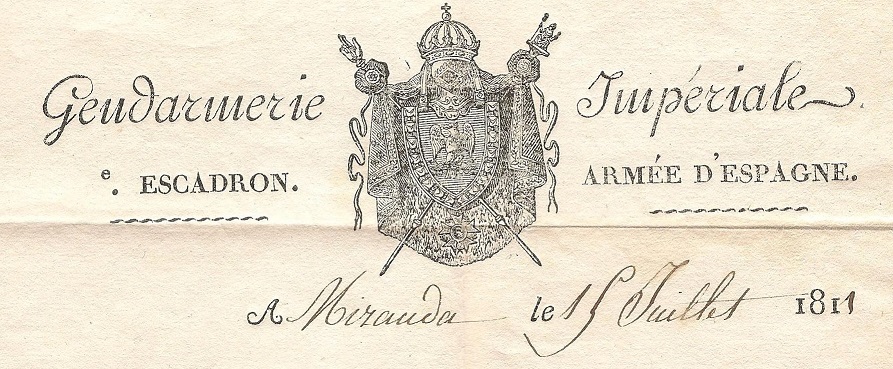 Gendarmerie Impériale
e. ESCADRON. ARMÉE D'ESPAGNE.
A Miranda le 15 Juillet 1811